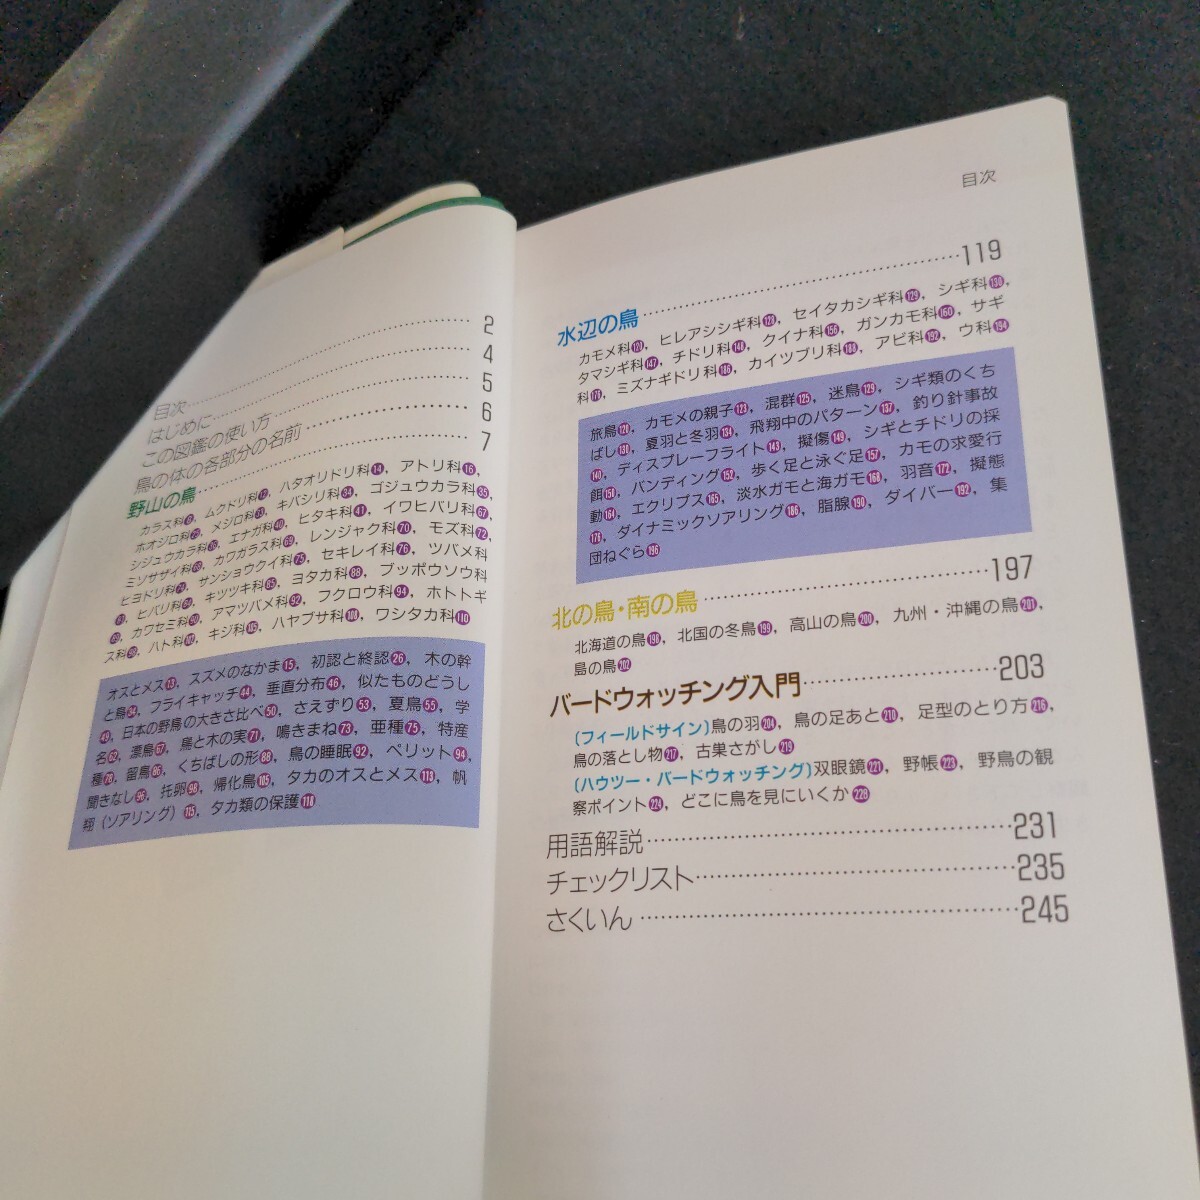 目次……2
はじめに……4
この図鑑の使い方……5
鳥の体の各部分の名前……6
野山の鳥……7
カラス科8，ムクドリ科12，ハタオリドリ科14，アトリ科16，
ホオジロ科25，メジロ科33，キバシリ科34，ゴジュウカラ科35，
シジュウカラ科36，エナガ科40，ヒタキ科41，イワヒバリ科67，
ミソサザイ科68，カワガラス科69，レンジャク科70，モズ科72，
ヒヨドリ科74，サンショウクイ科75，セキレイ科76，ツバメ科
81，ヒバリ科84，キツツキ科85，ヨタカ科88，ブッポウソウ科
89，カワセミ科90，アマツバメ科92，フクロウ科94，ホトトギ
ス科98，ハト科101，キジ科105，ハヤブサ科108，ワシタカ科110
オスとメス13，スズメのなかま15，初認と終認26，木の幹
と鳥34，フライキャッチ44，垂直分布46，似たものどうし
49，日本の野鳥の大きさ比べ50，さえずり53，夏鳥55，学
名62，漂鳥67，鳥と木の実71，鳴きまね73，亜種75，特産
種78，留鳥86，くちばしの形88，鳥の睡眠92，ペリット94，
聞きなし96，托卵98，帰化鳥105，タカのオスとメス113，帆
翔（ソアリング）115，タカ類の保護118
目次
水辺の鳥……119
カモメ科120，ヒレアシシギ科128，セイタカシギ科129，シギ科130，
タマシギ科147，チドリ科148，クイナ科156，ガンカモ科160，サギ
科178，ミズナギドリ科186，カイツブリ科188，アビ科192，ウ科194
旅鳥120，カモメの親子123，混群125，迷鳥129，シギ類のくち
ばし130，夏羽と冬羽134，飛翔中のパターン137，釣り針事故
140，ディスプレーフライト143，擬傷149，シギとチドリの採
餌150，バンディング152，歩く足と泳ぐ足157，カモの求愛行
動164，エクリプス165，淡水ガモと海ガモ168，羽音172，擬態
176，ダイナミックソアリング186，脂腺190，ダイバー192，集
団ねぐら196
北の鳥・南の鳥……197
北海道の鳥198，北国の冬鳥199，高山の鳥200，九州・沖縄の鳥201，
島の鳥202
バードウォッチング入門……203
〔フィールドサイン〕鳥の羽204，鳥の足あと210，足型のとり方216，
鳥の落とし物217，古巣さがし219
〔ハウツー・バードウォッチング〕双眼鏡221，野帳223，野鳥の観
察ポイント224，どこに鳥を見にいくか228
用語解説……231
チェックリスト……235
さくいん……245